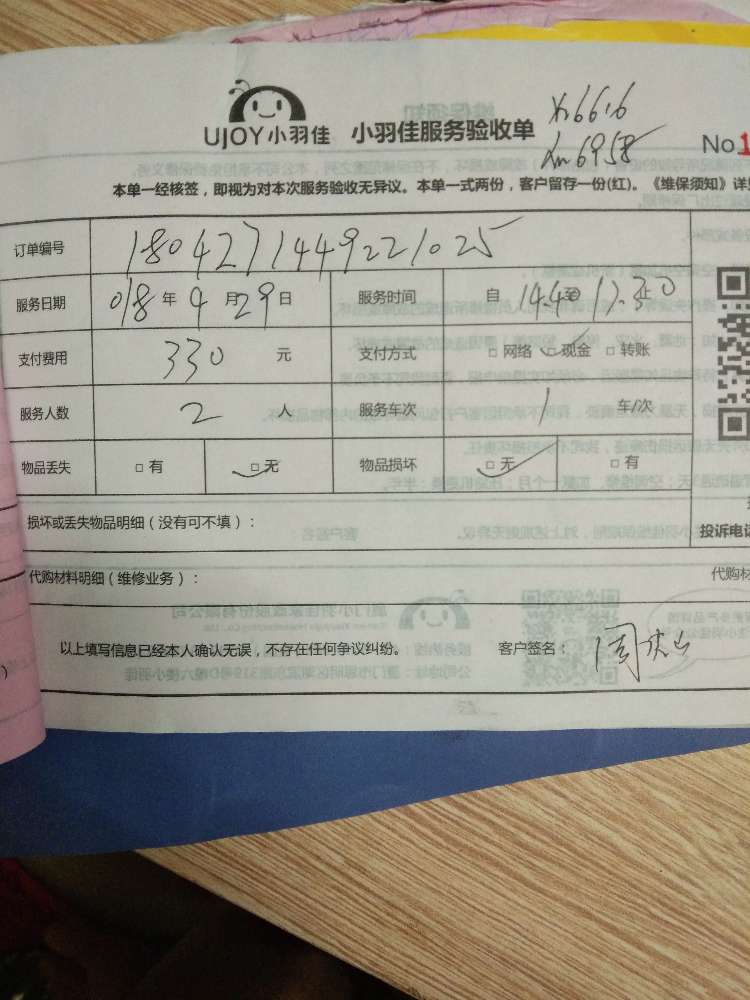 UJOY小羽佳 小羽佳服务验收单
6616
6958
No1
本单一经核签，即视为对本次服务验收无异议。本单一式两份，客户留存一份(红)。《维保须知》详
订单编号 1804271449221025
服务日期 018年4月29日 服务时间 自 14.4至 17.30
支付费用 330 元 支付方式 □网络 □现金 □转账
服务人数 2 人 服务车次 1 车/次
物品丢失 □有 □无 物品损坏 □无 □有
损坏或丢失物品明细（没有可不填）：
投诉电话
代购材料明细（维修业务）： 代购材
以上填写信息已经本人确认无误，不存在任何争议纠纷。 客户签名：周